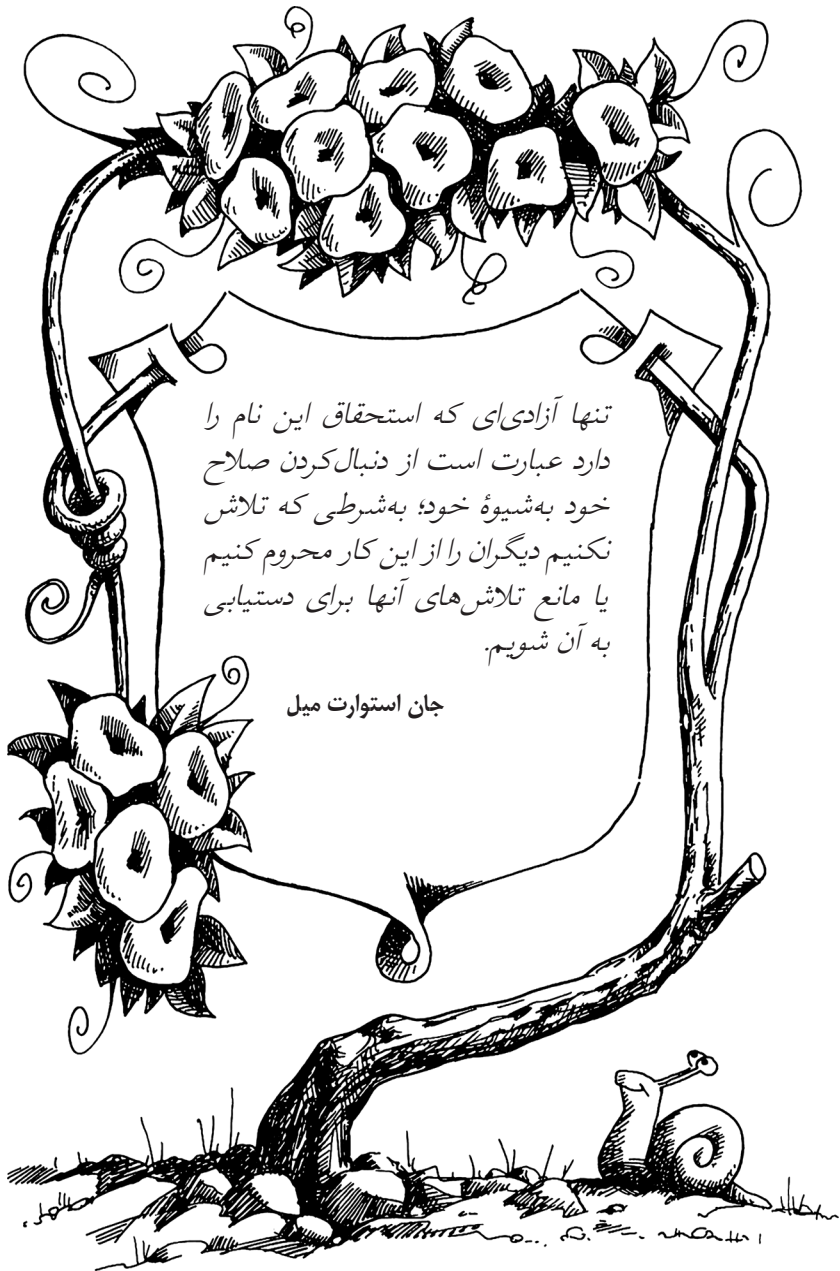 تنها آزادی‌ای که استحقاق این نام را
دارد عبارت است از دنبال‌کردن صلاح
خود به‌شیوهٔ خود؛ به‌شرطی که تلاش
نکنیم دیگران را از این کار محروم کنیم
یا مانع تلاش‌های آنها برای دستیابی
به آن شویم.
جان استوارت میل